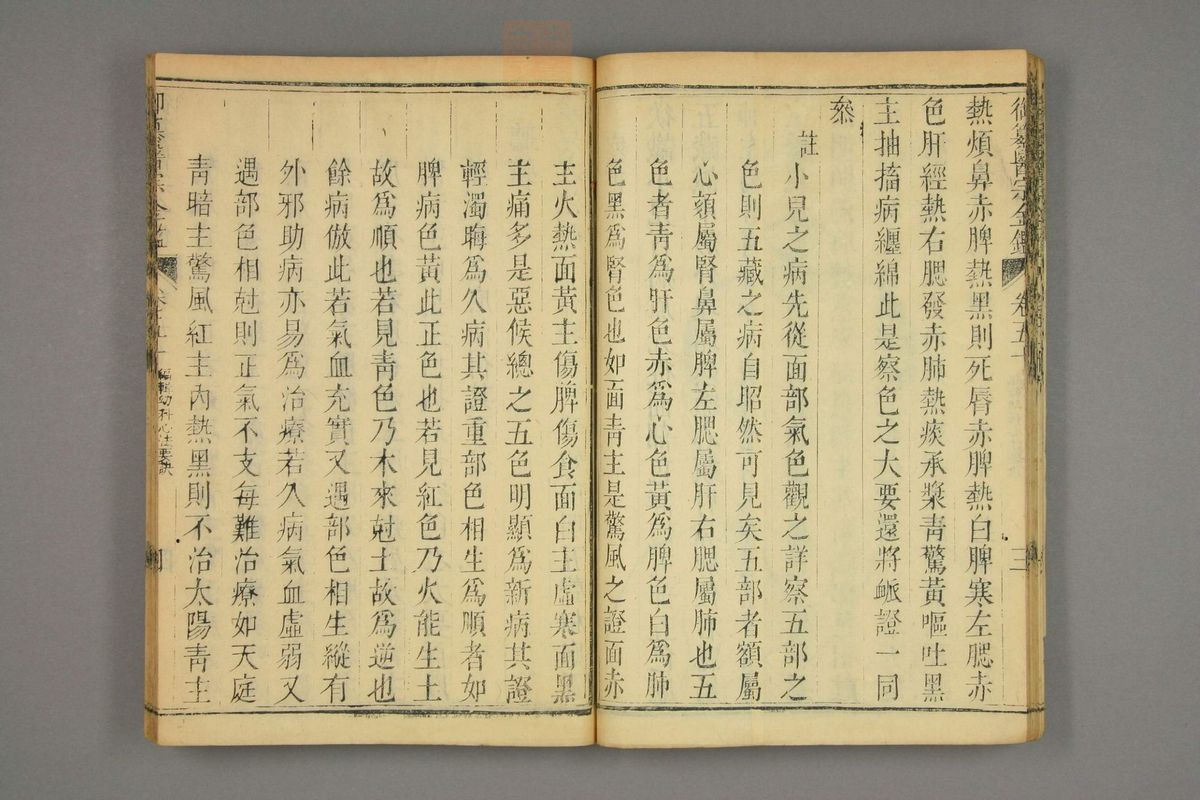 御纂醫宗金鑑 卷五十 三
熱煩鼻赤脾熱黑則死脣赤脾熱白脾寒左腮赤
色肝經熱右腮發赤肺熱痰承漿青驚黃嘔吐黑
主抽搐病纏綿此是察色之大要還將脈證一同
叅
註小兒之病先從面部氣色觀之詳察五部之
色則五藏之病自昭然可見矣五部者額屬
心頦屬腎鼻屬脾左腮屬肝右腮屬肺也五
色者青爲肝色赤爲心色黃爲脾色白爲肺
色黑爲腎色也如面青主是驚風之證面赤
主火熱面黃主傷脾傷食面白主虛寒面黑
主痛多是惡候總之五色明顯爲新病其證
輕濁晦爲久病其證重部色相生爲順者如
脾病色黃此正色也若見紅色乃火能生土
故爲順也若見青色乃木來尅土故爲逆也
餘病倣此若氣血充實又遇部色相生縱有
外邪助病亦易爲治療若久病氣血虛弱又
遇部色相尅則正氣不支每難治療如天庭
青暗主驚風紅主內熱黑則不治太陽青主
編輯幼科心法要訣 四